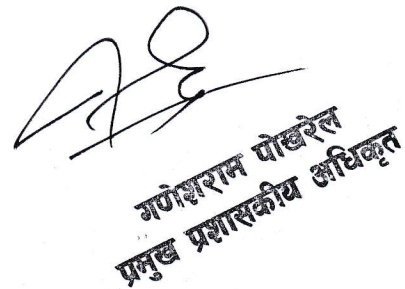 गणेशराम पोखरेल
प्रमुख प्रशासकीय अधिकृत